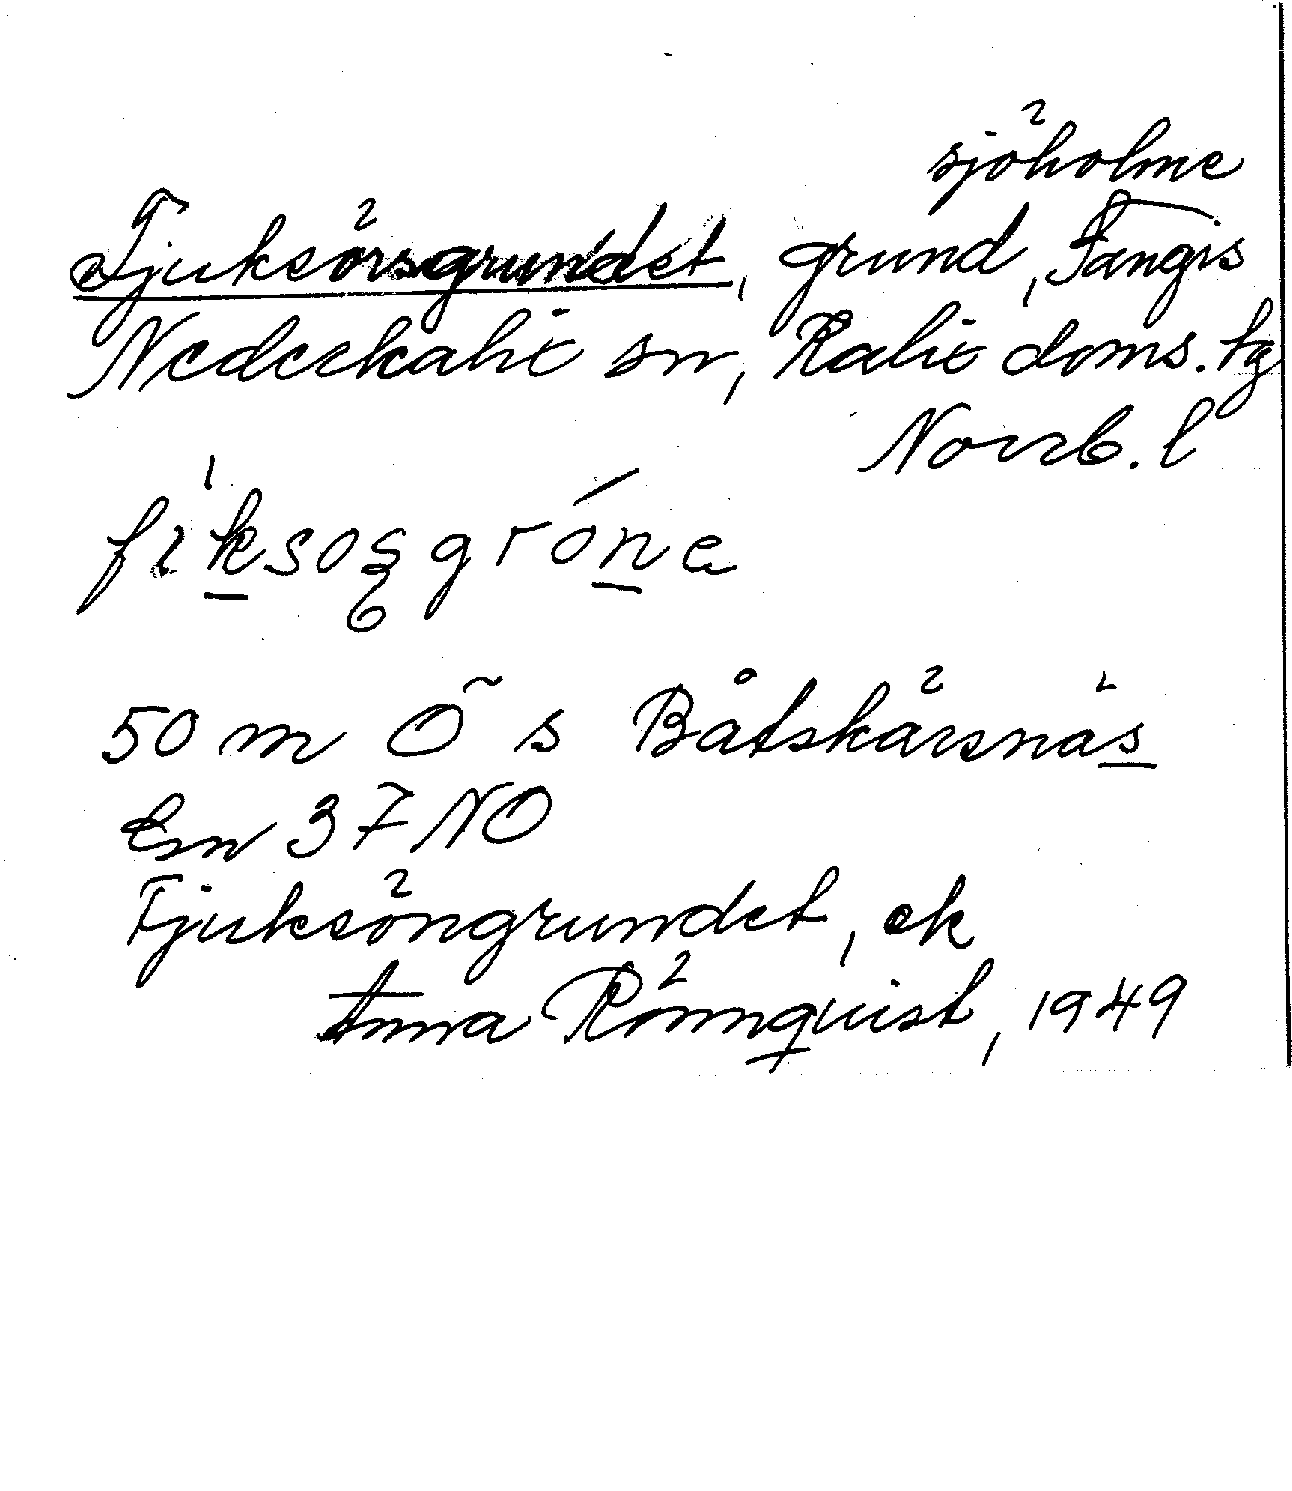 sjöholme
Tjuksörsgrundet, grund, Tangis
Nederkalix sn, Kalix doms. tg
Norrb. l
50 m Ö s Båtskärsnäs
En 37 NO
Tjuksöngrundet, ek
Anna Rönnquist, 1949